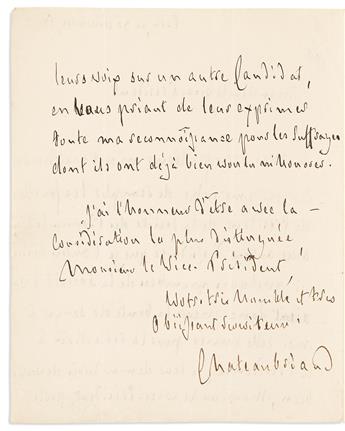 leurs voix sur un autre Candidat,
en vous priant de leur exprimer
toute ma reconnoissance pour les suffrages
dont ils ont déjà bien voulu m'honorer.
J'ai l'honneur d'être avec la
considération la plus distinguée,
Monsieur le Vice-Président,
Votre très humble et très
obéissant serviteur.
Chateaubriand